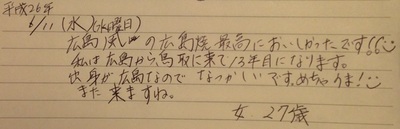 平成26年
6/11（水）（水曜日）
広島風の広島焼最高においしかったです!!
私は広島から鳥取に来て13年目になります。
出身が広島なのでなつかしいです。めちゃうま!
また来ますね。
女 27歳